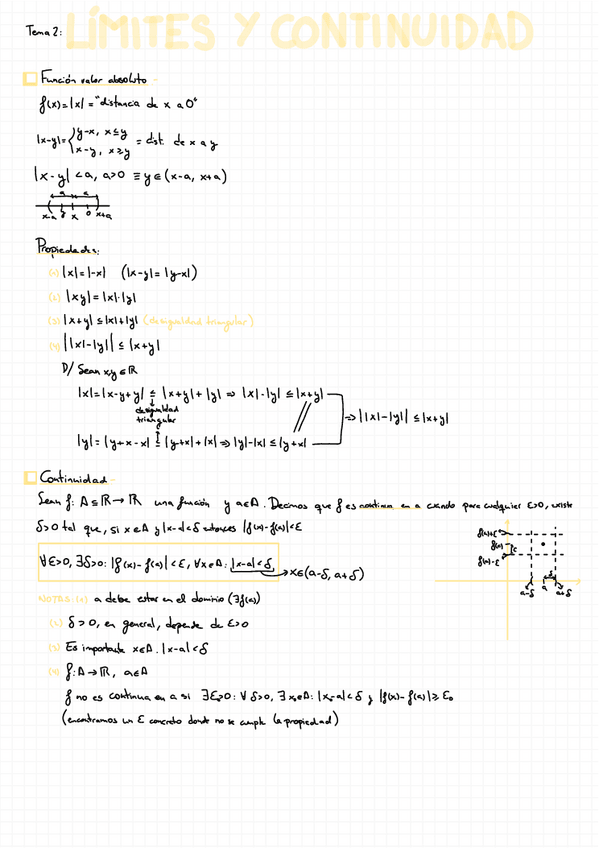 Tema 2: LÍMITES Y CONTINUIDAD
Función valor absoluto
f(x)=|x| = "distancia de x a 0"
|x-y|= { y-x, x≤y
x-y, x≥y = dist. de x a y
|x-y| <a, a>0 ≡ y∈(x-a, x+a)
a a
x-a y x 0 x+a
Propiedades:
(1) |x|=|-x| (|x-y|=|y-x|)
(2) |xy|=|x|·|y|
(3) |x+y| ≤|x|+|y| (desigualdad triangular)
(4) ||x|-|y|| ≤ |x+y|
D/ Sean x,y∈ℝ
|x|=|x-y+y| ≤ |x+y|+|y| ⇒ |x|-|y| ≤|x+y|
desigualdad
triangular
⇒ ||x|-|y|| ≤|x+y|
|y|=|y+x-x| ≤ |y+x|+|x| ⇒ |y|-|x| ≤|y+x|
Continuidad
Sean f: A⊆ℝ→ℝ una función y a∈A. Decimos que f es continua en a cuando para cualquier ε>0, existe
δ>0 tal que, si x∈A y |x-a|<δ entonces |f(x)-f(a)|<ε
∀ε>0, ∃δ>0: |f(x)-f(a)|<ε, ∀x∈A: |x-a|<δ → x∈(a-δ, a+δ)
f(a)+ε
f(a)
ε
f(a)-ε
a-δ a a+δ
δ
NOTAS: (1) a debe estar en el dominio (∃f(a))
(2) δ>0, en general, depende de ε>0
(3) Es importante x∈A. |x-a|<δ
(4) f:A→ℝ, a∈A
f no es continua en a si ∃ε₀>0: ∀δ>0, ∃x₀∈A: |x₀-a|<δ y |f(x)-f(a)|≥ε₀
(encontramos un ε concreto donde no se cumple la propiedad)